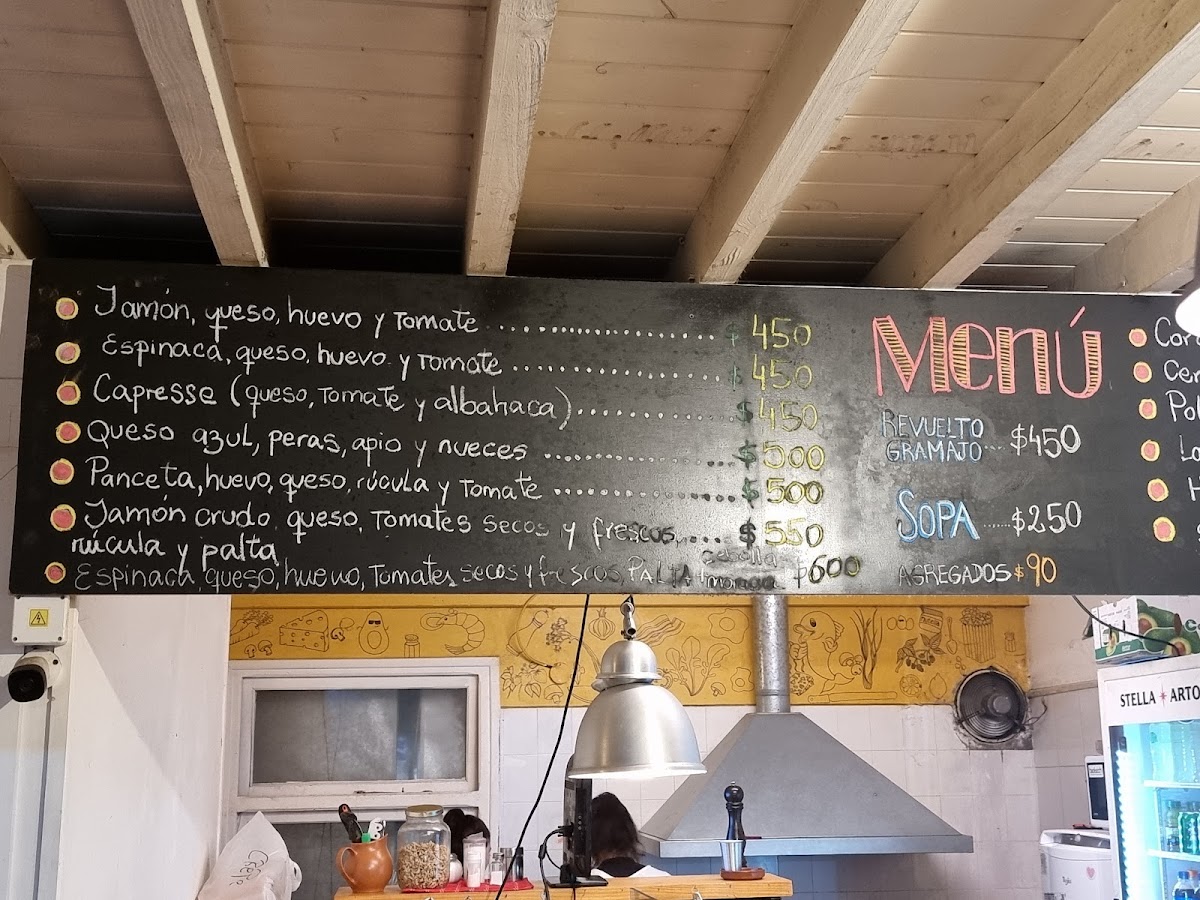 Jamón, queso, huevo y Tomate ........................ $ 450
Espinaca, queso, huevo y Tomate ........................ $ 450
Capresse (queso, Tomate y albahaca) .................... $ 450
Queso azul, peras, apio y nueces ........................ $ 500
Panceta, huevo, queso, rúcula y Tomate ........................ $ 500
Jamón crudo, queso, Tomates secos y frescos, .... $ 550
rúcula y palta
Espinaca, queso, huevo, Tomates secos y frescos, PALTA $600
Menú
REVUELTO
GRAMAJO ... $450
SOPA ...... $250
AGREGADOS $90
Cor
Cer
Pol
La
H
STELLA ARTO